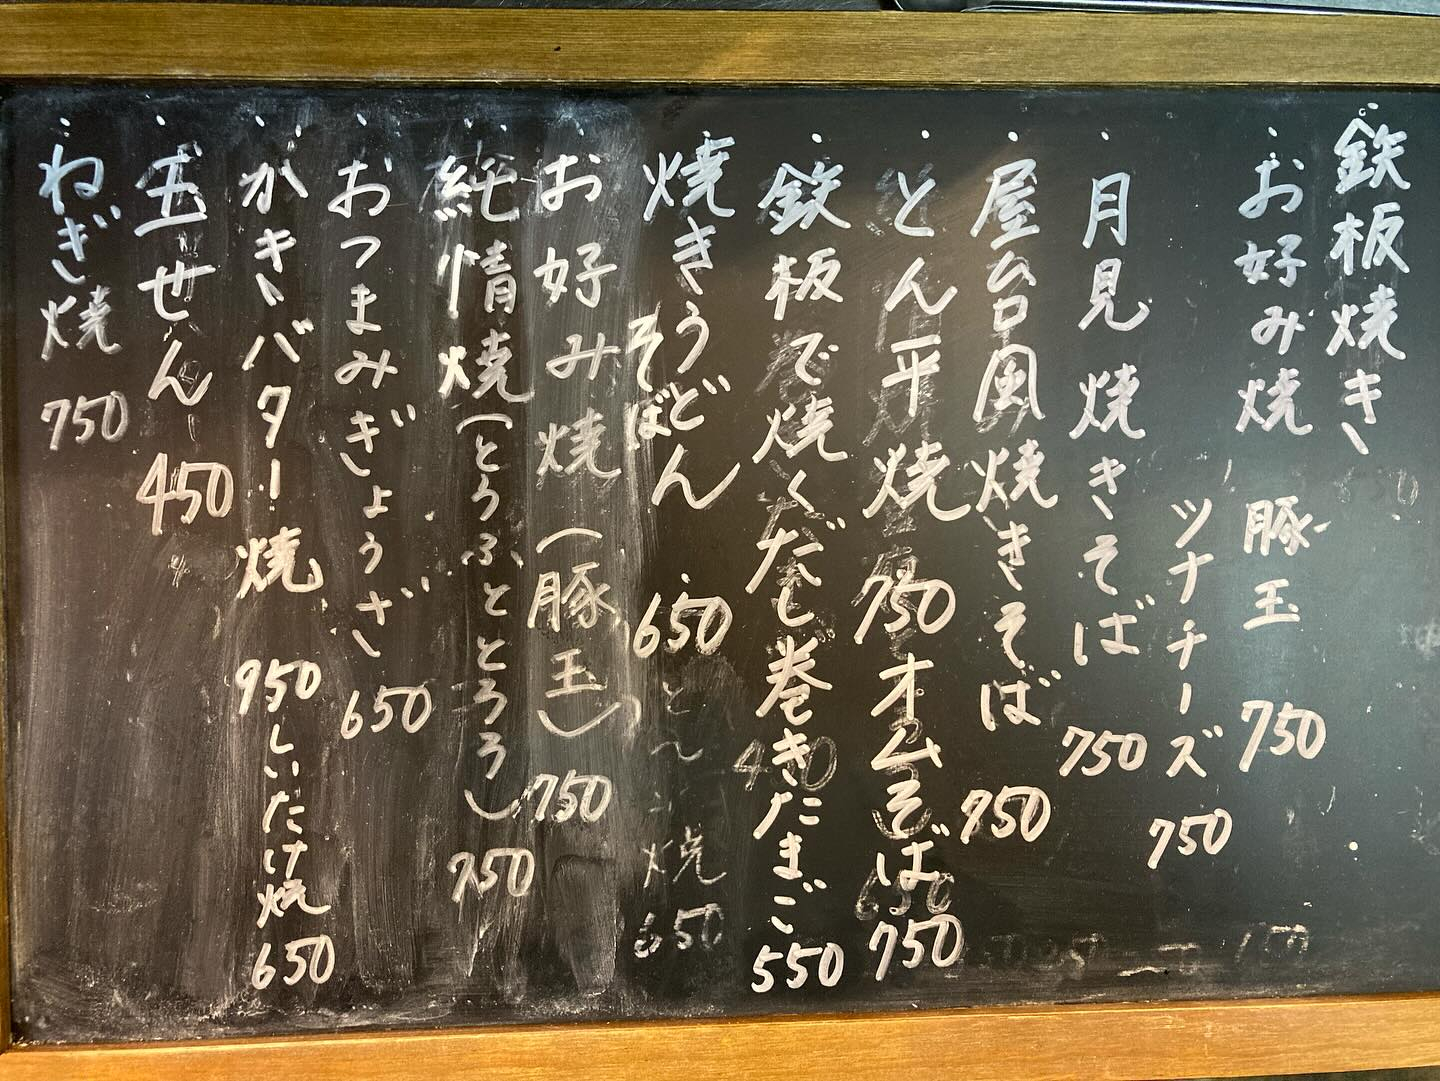 鉄板焼き
・お好み焼 豚玉 750
ツナチーズ 750
・月見焼きそば 750
・屋台風焼きそば 750
・とん平焼 750 オムそば 750
・鉄板で焼くだし巻きたまご 550
・焼きうどん 650
そば
・お好み焼(豚玉) 750
・純情焼(とうふととろろ) 750
・おつまみぎょうざ 650
・かきバター焼 950 しいたけ焼 650
・玉せん 450
・ねぎ焼 750